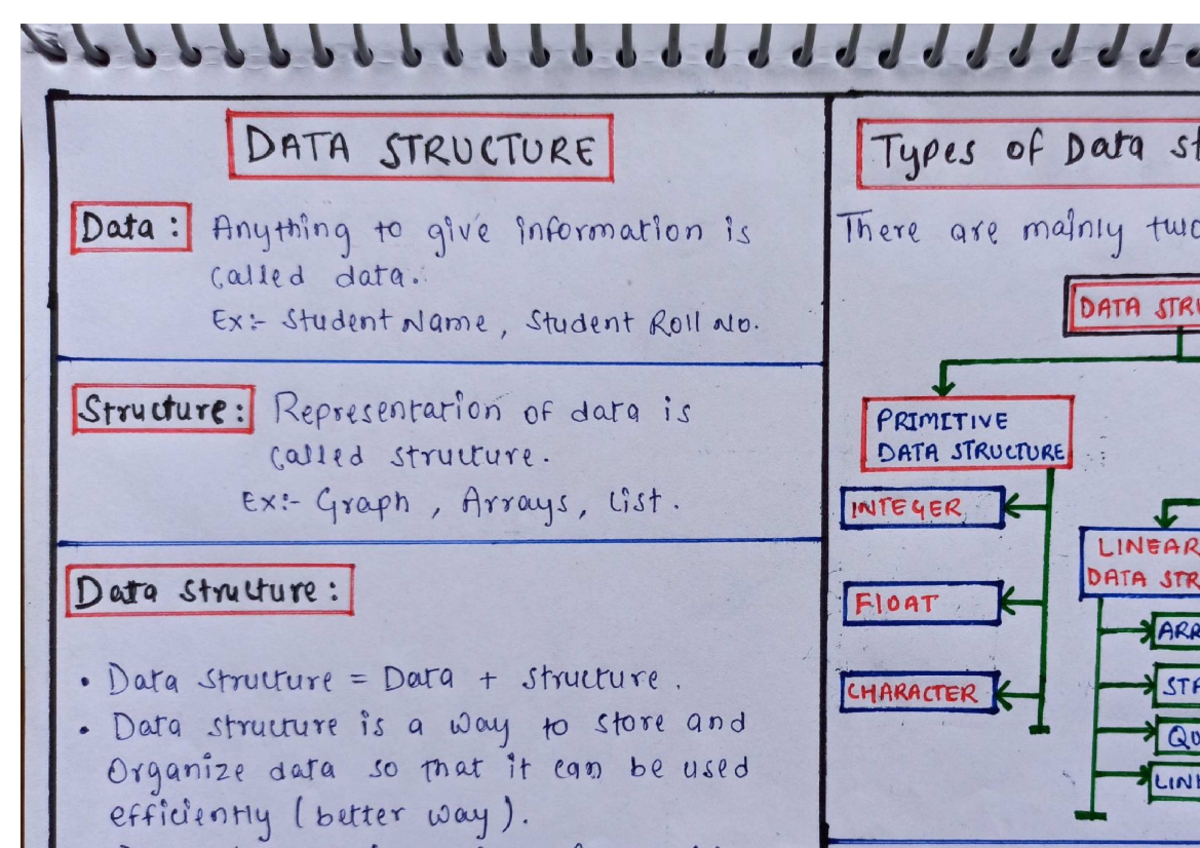 DATA STRUCTURE
Data : Anything to give information is
called data.
Ex:- Student Name, Student Roll No.
Structure: Representation of data is
called structure.
Ex:- Graph, Arrays, List.
Data structure :
• Data structure = Data + structure.
• Data structure is a way to store and
Organize data so that it can be used
efficiently (better way).
Types of Data
There are mainly
DATA
PRIMITIVE
DATA STRUCTURE
INTEGER
FlOAT
CHARACTER
LINEAR
DATA